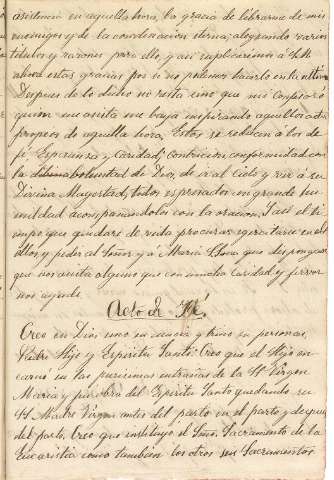 asistencia en aquella hora, la gracia de librarme de mis
enemigos y de la condenacion eterna, alegando varios
titulos y razones para ello, y asi supliciremos á S. M.
ahora estas gracias por si no podemos hacerlo en la ultima
Despues de lo dicho no resta sino que mi Confesor ó
quien me asista me vaya inspirando aquellos actos
propios de aquella hora, Estos se reducen á los de
fé, Esperanza y Caridad, Contricion, conformidad con
la divina voluntad de Dios, de ir al Cielo y ver á su
Divina Magestad, todos espresados con grande hu
mildad acompañandolos con la oracion, I asi el ti
empo que quedare de vida procurar ejercitarse en
ellos y pedir al Señor y á Maria Stma que disponga
que nos asista alguno que con mucha caridad y fervor
nos ayude.
Acto de Fé.
Creo en Dios uno en esencia y trino en personas,
Padre Hijo y Espiritu Santo. Creo que el Hijo en
carnó en las purisimas entrañas de la St Virgen
Maria y por obra del Espiritu Santo quedando su
St. Madre Virgen antes del parto en el parto y despues
del parto. Creo que instituyó el Smo. Sacramento de la
Eucaristia como tambien los otros seis Sacramentos